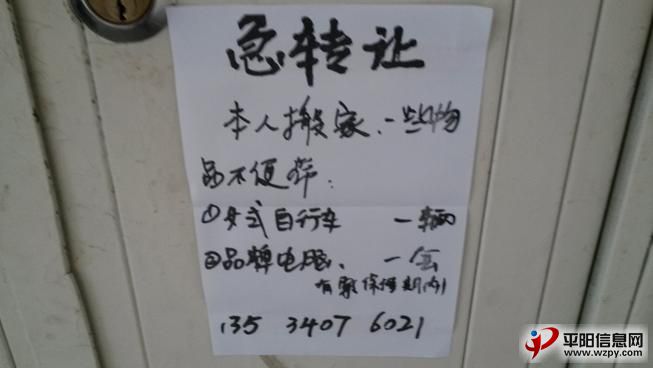 急转让
本人搬家,一些物
品不便带:
①女式自行车 一辆
②品牌电脑、 一台
有票保修期内
135 3407 6021
平阳信息网
www.wzpy.com